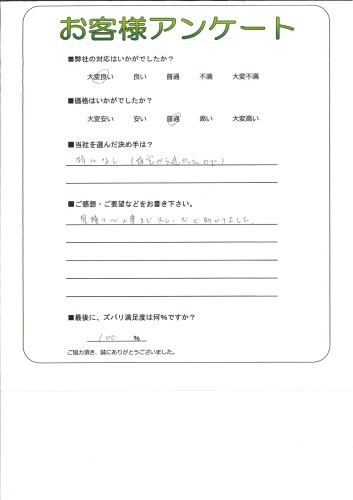 お客様アンケート
■弊社の対応はいかがでしたか？
大変良い 良い 普通 不満 大変不満
■価格はいかがでしたか？
大変安い 安い 普通 高い 大変高い
■当社を選んだ決め手は？
特になし（自宅から近かったので）
■ご感想・ご要望などをお書き下さい。
見積り〜工事までスムーズで助かりました。
■最後に、ズバリ満足度は何%ですか？
100 %
ご協力頂き、誠にありがとうございました。